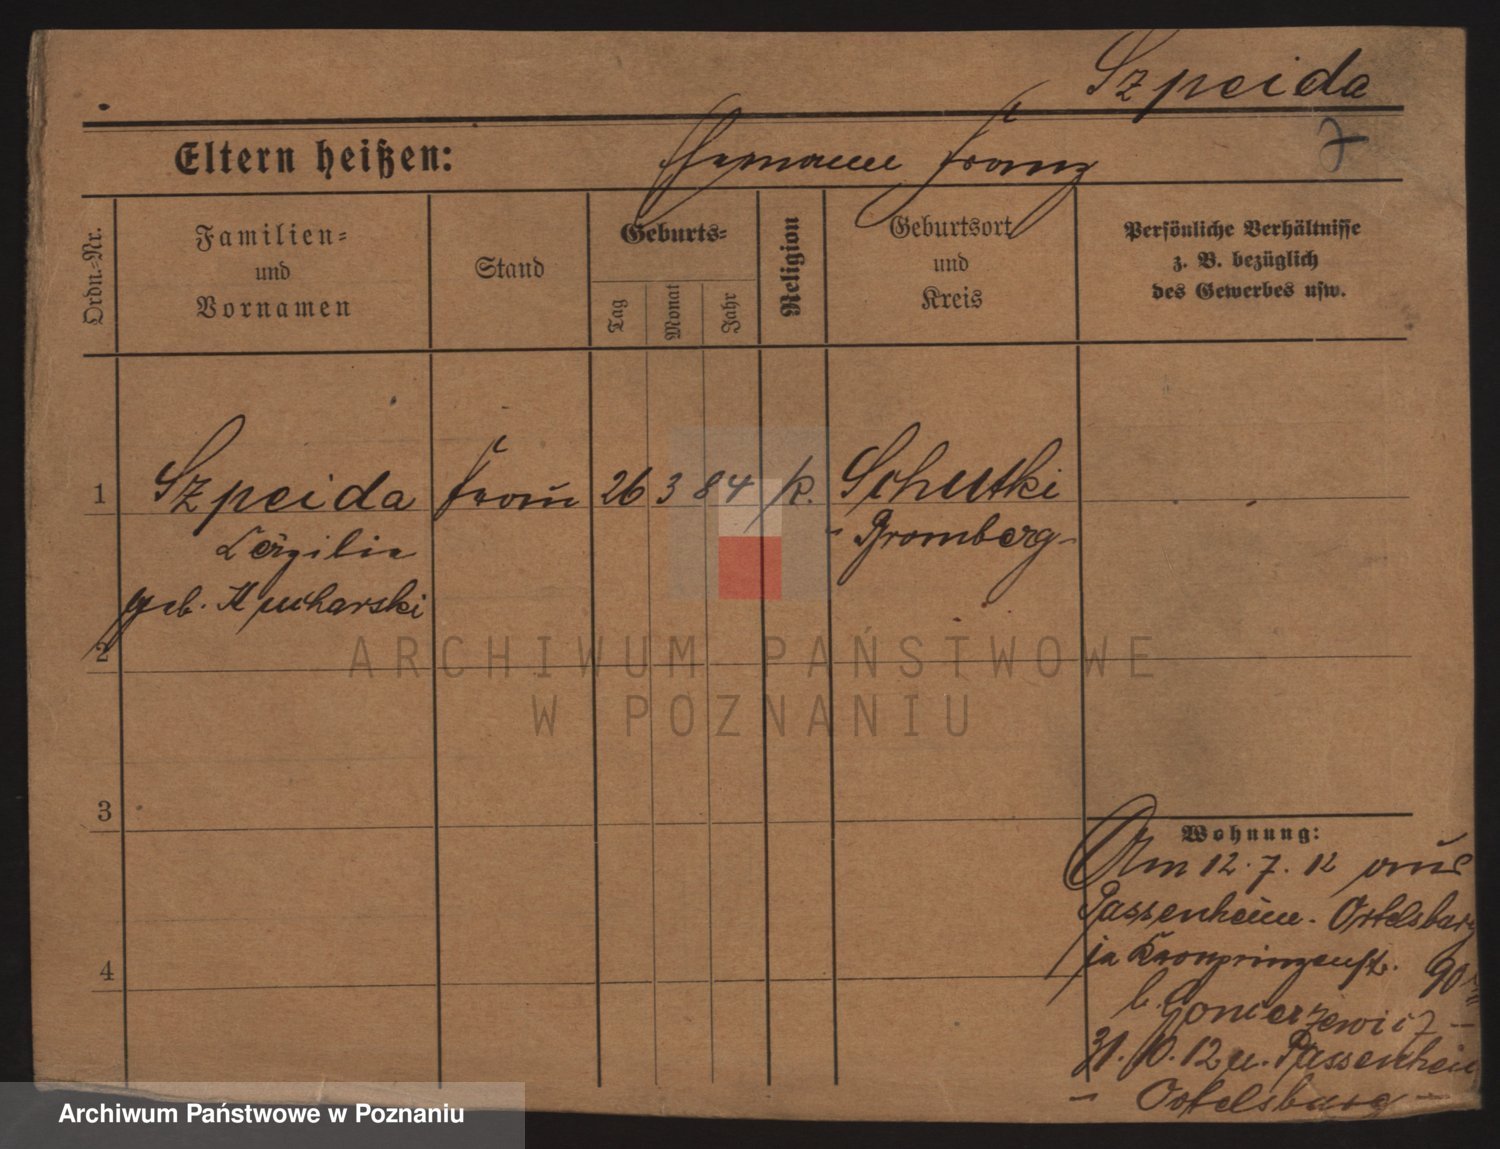 Szpeida
7
Eltern heißen: Ehemann Franz
Ordn.=Nr.
Familien=
und
Vornamen
Stand
Geburts=
Tag
Monat
Jahr
Religion
Geburtsort
und
Kreis
Persönliche Verhältnisse
z. B. bezüglich
des Gewerbes usw.
1 Szpeida Frau 26 3 84 k. Schutki
Cäzilie - Bromberg -
geb. Kucharski
2
3
4
Wohnung:
Am 12.7.12 aus
Passenheim - Ortelsburg
ja Kronprinzenstr. 90
b. Goncerzewicz -
31.10.12 u. Passenheim
- Ortelsburg -
ARCHIWUM PAŃSTWOWE
W POZNANIU
Archiwum Państwowe w Poznaniu